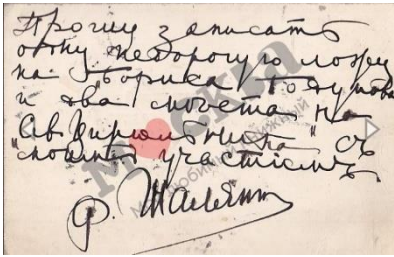 Прошу записать
одну недорогую ложу
на "Бориса Годунова"
и два места на
"Сев. Цирюльника" съ
моимъ участіемъ
Ф. Шаляпин
Москва
Мой любимый книжный